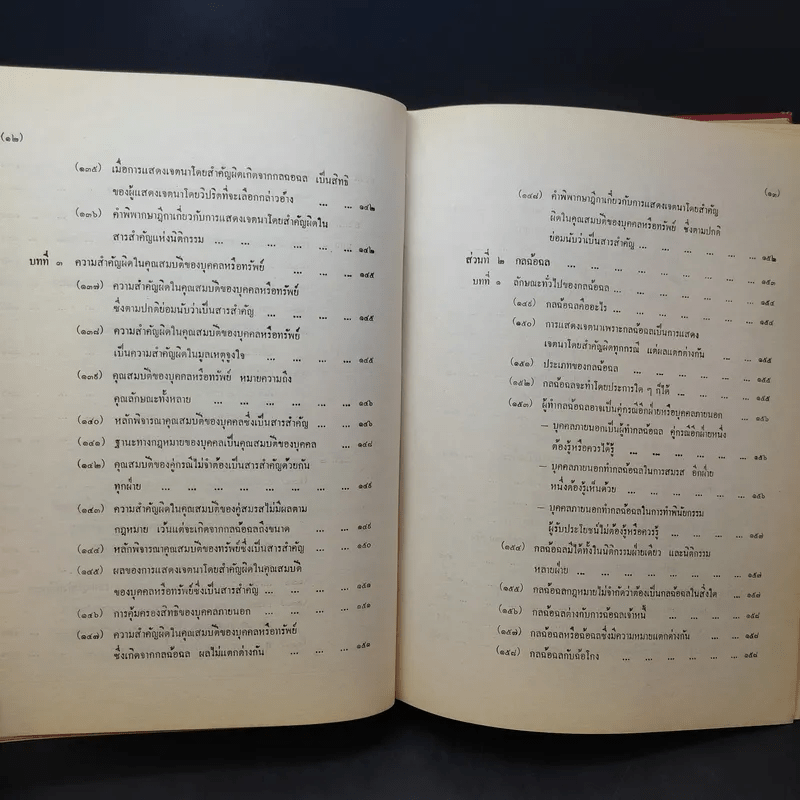 (๑๒)
(๑๓๕) เมื่อการแสดงเจตนาโดยสำคัญผิดเกิดจากกลฉ้อฉล เป็นสิทธิ
ของผู้แสดงเจตนาโดยวิปริตที่จะเลือกกล่าวอ้าง ... ... ๑๔๒
(๑๓๖) คำพิพากษาฎีกาเกี่ยวกับการแสดงเจตนาโดยสำคัญผิดใน
สารสำคัญแห่งนิติกรรม ... ... ... ... ... ... ๑๔๒
บทที่ ๓ ความสำคัญผิดในคุณสมบัติของบุคคลหรือทรัพย์ ... ... ๑๔๕
(๑๓๗) ความสำคัญผิดในคุณสมบัติของบุคคลหรือทรัพย์
ซึ่งตามปกติย่อมนับว่าเป็นสารสำคัญ ... ... ... ๑๔๕
(๑๓๘) ความสำคัญผิดในคุณสมบัติของบุคคลหรือทรัพย์
เป็นความสำคัญผิดในมูลเหตุจูงใจ ... ... ... ... ๑๔๕
(๑๓๙) คุณสมบัติของบุคคลหรือทรัพย์ หมายความถึง
คุณลักษณะทั้งหลาย ... ... ... ... ... ... ๑๔๖
(๑๔๐) หลักพิจารณาคุณสมบัติของบุคคลซึ่งเป็นสารสำคัญ ... ... ๑๔๖
(๑๔๑) ฐานะทางกฎหมายของบุคคลเป็นคุณสมบัติของบุคคล ... ๑๔๘
(๑๔๒) คุณสมบัติของคู่กรณีไม่จำต้องเป็นสารสำคัญด้วยกัน
ทุกฝ่าย ... ... ... ... ... ... ... ๑๔๙
(๑๔๓) ความสำคัญผิดในคุณสมบัติของคู่สมรสไม่มีผลตาม
กฎหมาย เว้นแต่จะเกิดจากกลฉ้อฉลถึงขนาด ... ... ๑๔๙
(๑๔๔) หลักพิจารณาคุณสมบัติของทรัพย์ซึ่งเป็นสารสำคัญ ... ... ๑๕๐
(๑๔๕) ผลของการแสดงเจตนาโดยสำคัญผิดในคุณสมบัติ
ของบุคคลหรือทรัพย์ซึ่งเป็นสารสำคัญ ... ... ... ... ๑๕๑
(๑๔๖) การคุ้มครองสิทธิของบุคคลภายนอก ... ... ... ... ๑๕๑
(๑๔๗) ความสำคัญผิดในคุณสมบัติของบุคคลหรือทรัพย์
ซึ่งเกิดจากกลฉ้อฉล ผลไม่แตกต่างกัน ... ... ... ... ๑๕๑
(๑๓)
(๑๔๘) คำพิพากษาฎีกาเกี่ยวกับการแสดงเจตนาโดยสำคัญ
ผิดในคุณสมบัติของบุคคลหรือทรัพย์ ซึ่งตามปกติ
ย่อมนับว่าเป็นสารสำคัญ ... ... ... ... ... ๑๕๒
ส่วนที่ ๒ กลฉ้อฉล ... ... ... ... ... ... ... ๑๕๓
บทที่ ๑ ลักษณะทั่วไปของกลฉ้อฉล ... ... ... ... ... ๑๕๔
(๑๔๙) กลฉ้อฉลคืออะไร ... ... ... ... ... ... ๑๕๔
(๑๕๐) การแสดงเจตนาเพราะกลฉ้อฉลเป็นการแสดง
เจตนาโดยสำคัญผิดทุกกรณี แต่ผลแตกต่างกัน ... ... ๑๕๕
(๑๕๑) ประเภทของกลฉ้อฉล ... ... ... ... ... ๑๕๕
(๑๕๒) กลฉ้อฉลจะทำโดยประการใด ๆ ก็ได้ ... ... ... ๑๕๕
(๑๕๓) ผู้ทำกลฉ้อฉลอาจเป็นคู่กรณีอีกฝ่ายหรือบุคคลภายนอก ... ๑๕๖
– บุคคลภายนอกเป็นผู้ทำกลฉ้อฉล คู่กรณีอีกฝ่ายหนึ่ง
ต้องรู้หรือควรได้รู้ ... ... ... ... ... ๑๕๖
– บุคคลภายนอกทำกลฉ้อฉลในการสมรส อีกฝ่าย
หนึ่งต้องรู้เห็นด้วย ... ... ... ... ... ๑๕๖
– บุคคลภายนอกทำกลฉ้อฉลในการทำพินัยกรรม
ผู้รับประโยชน์ไม่ต้องรู้หรือควรรู้ ... ... ... ... ๑๕๗
(๑๕๔) กลฉ้อฉลมีได้ทั้งในนิติกรรมฝ่ายเดียว และนิติกรรม
หลายฝ่าย ... ... ... ... ... ... ... ๑๕๗
(๑๕๕) กลฉ้อฉลกฎหมายไม่จำกัดว่าต้องเป็นกลฉ้อฉลในสิ่งใด ... ๑๕๗
(๑๕๖) กลฉ้อฉลต่างกับการฉ้อฉลเจ้าหนี้ ... ... ... ... ๑๕๘
(๑๕๗) กลฉ้อฉลหรือฉ้อฉลซึ่งมีความหมายแตกต่างกัน ... ... ๑๕๘
(๑๕๘) กลฉ้อฉลกับฉ้อโกง ... ... ... ... ... ... ๑๕๘